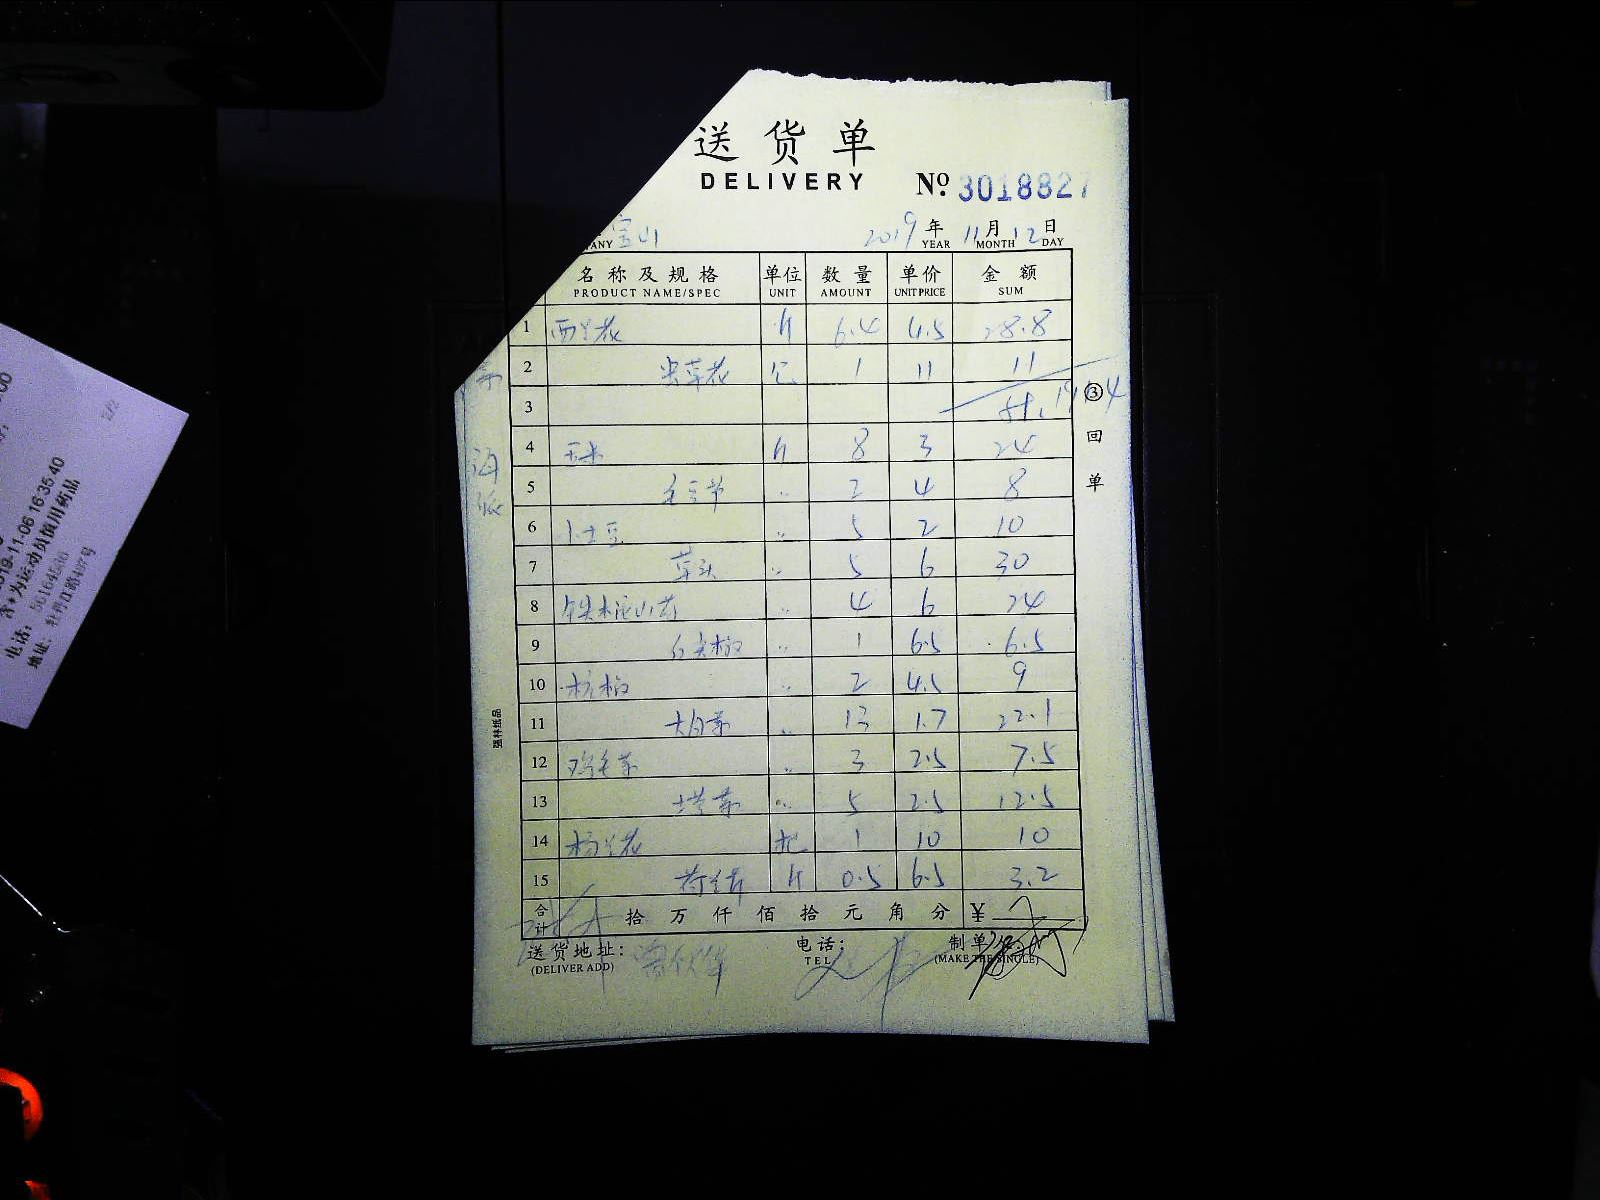 送货单
DELIVERY
№ 3018827
ANY 宝山 2019年 11月 12日
YEAR MONTH DAY
名称及规格 单位 数量 单价 金额
PRODUCT NAME/SPEC UNIT AMOUNT UNIT PRICE SUM
1 西兰花 斤 6.4 4.5 28.8
2 虫草花 1 11 11
3
4 玉米 斤 8 3 24
5 毛豆节 〃 2 4 8
6 小土豆 〃 5 2 10
7 草头 〃 5 6 30
8 铁棍山药 〃 4 6 24
9 白尖椒 〃 1 6.5 6.5
10 杭椒 〃 2 4.5 9
11 大白菜 〃 13 1.7 22.1
12 鸡毛菜 〃 3 2.5 7.5
13 塔菜 〃 5 2.5 12.5
14 杨兰花 把 1 10 10
15 荷兰芹 斤 0.5 6.5 3.2
合计 拾 万 仟 佰 拾 元 角 分 ¥
送货地址: 电话: 制单
(DELIVER ADD) TEL (MAKE THE SINGLE)
③回单
强林纸品
2019-11-06 16:35:40
含*为运动员慎用药品
电话:
地址: